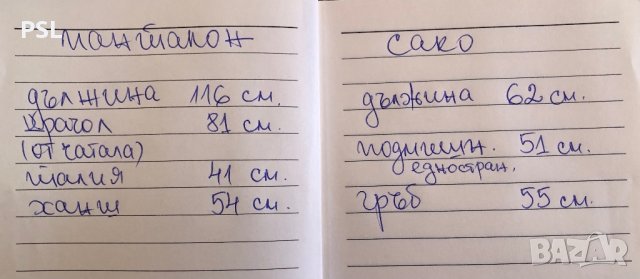 PSL
панталон
дължина 116 см.
крачол 81 см.
(от чатала)
талия 41 см.
ханш 54 см.
сако
дължина 62 см.
подмишн. 51 см.
едностран.
гръб 55 см.
BAZAR